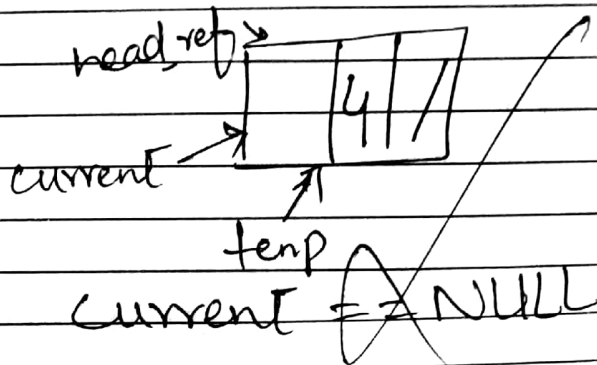 head_ref
4 /
current
temp
current == NULL